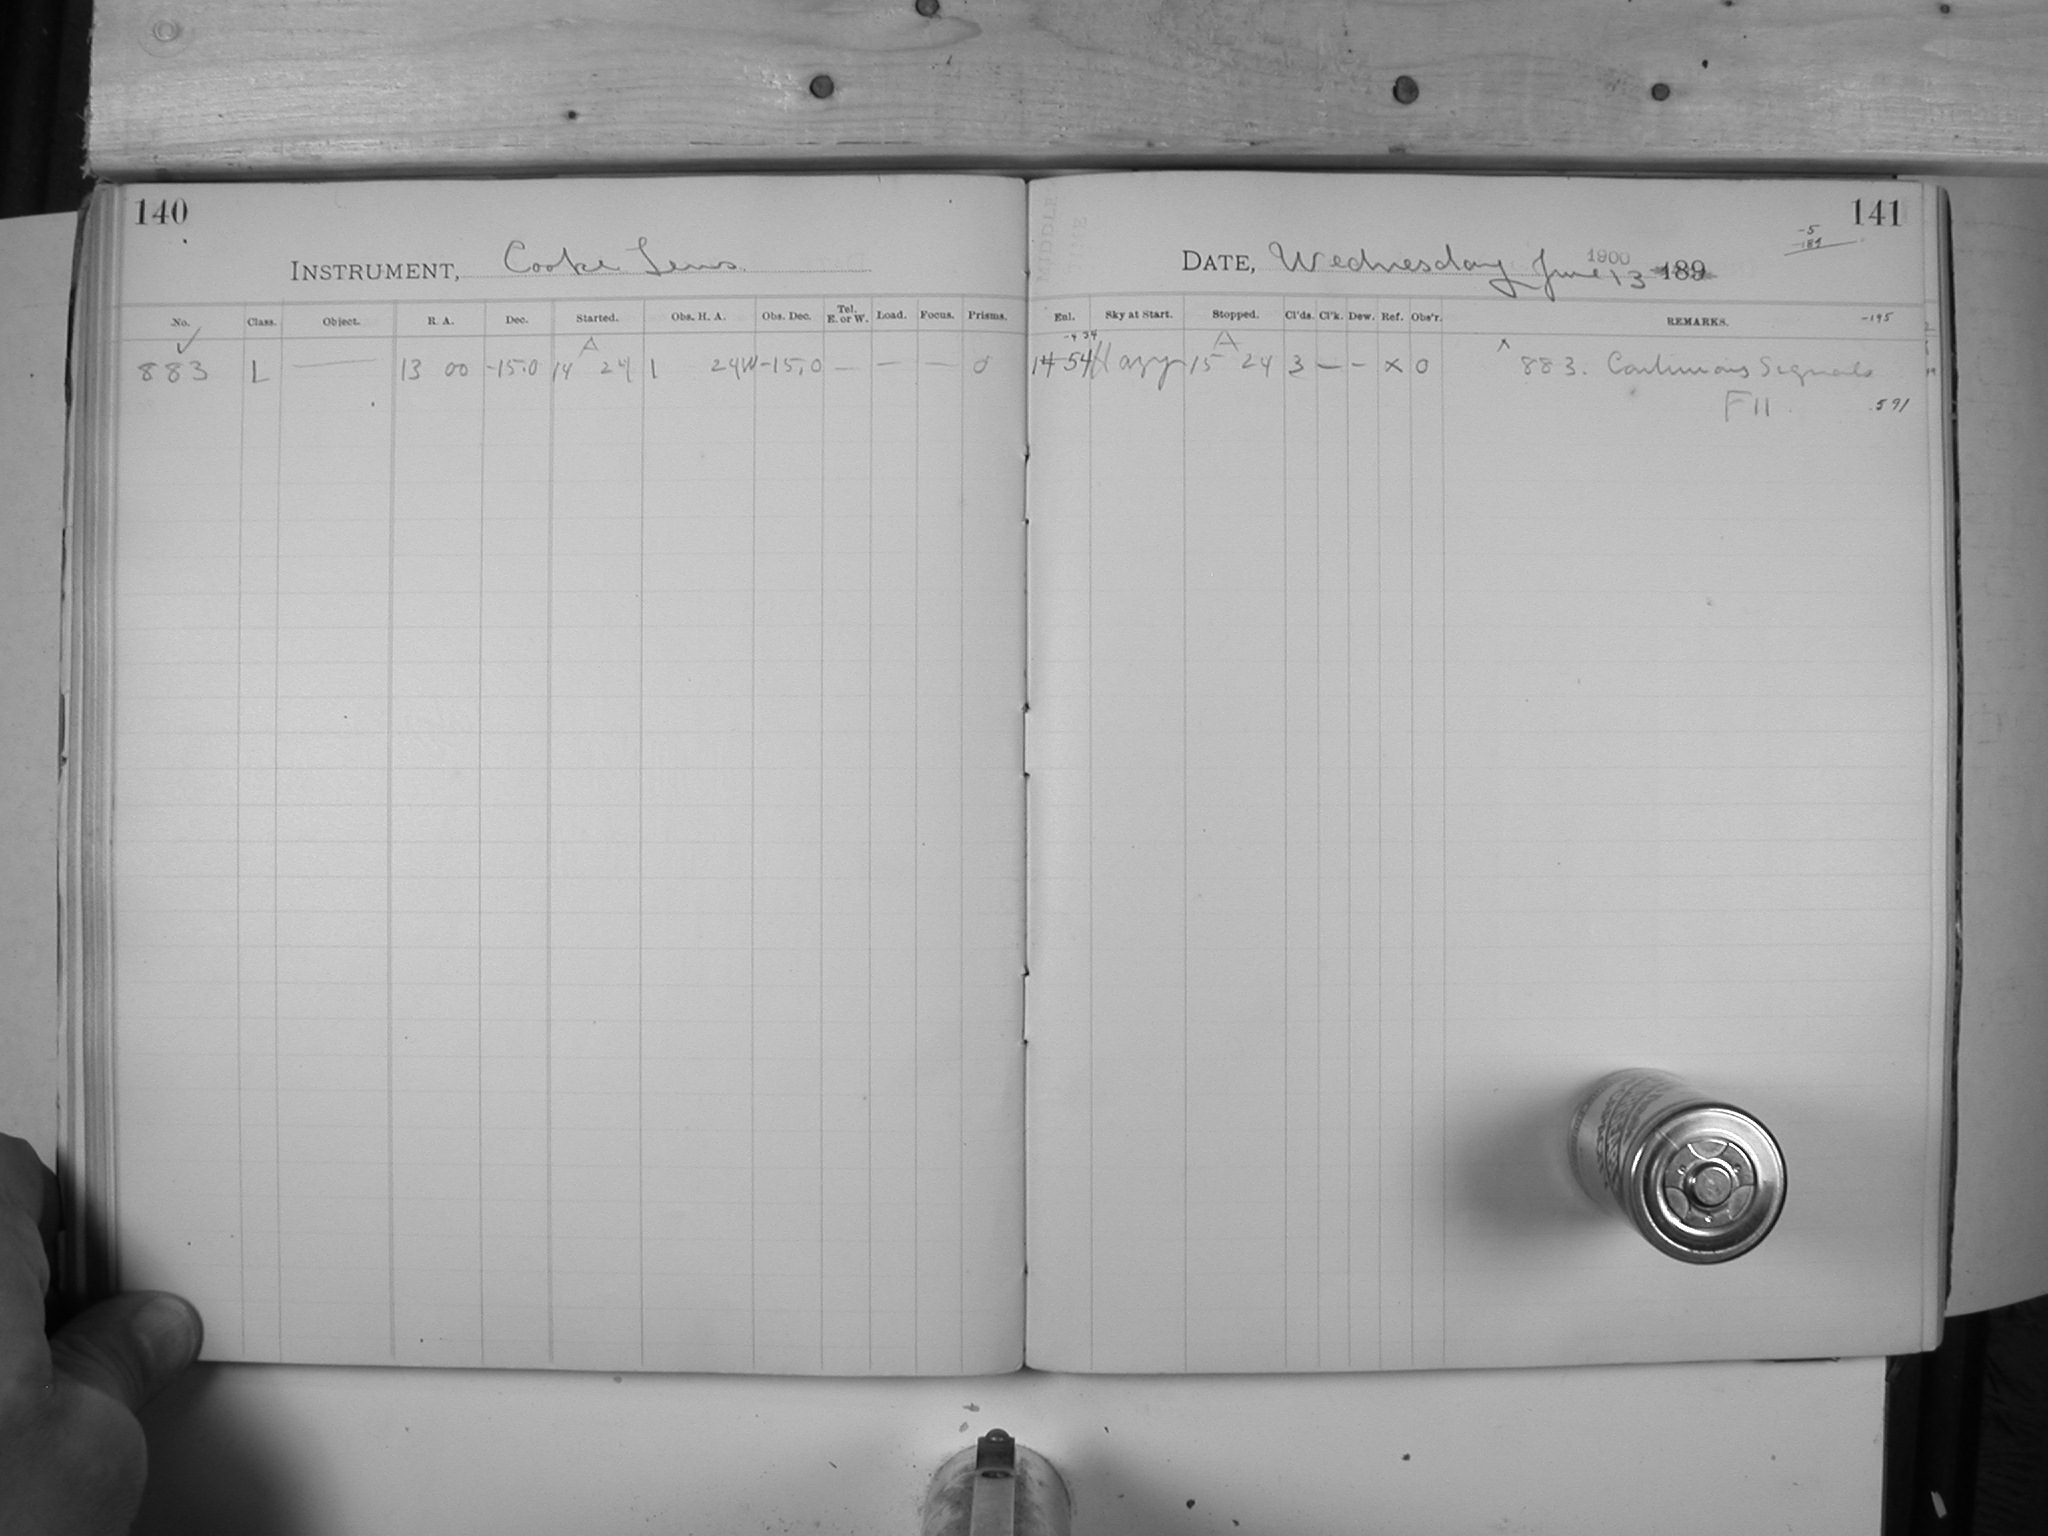 140
INSTRUMENT, Cooke Lens
No. Class. Object. R. A. Dec. Started. Obs. H. A. Obs. Dec. Tel. E. or W. Load. Focus. Prisms.
✓ A
883 L — 13 00 -15.0 14 24 1 24W -15.0 — — — 0
141
-5
-189
DATE, Wednesday June 13 1900 189
MIDDLE
Exl. Sky at Start. Stopped. Cl'ds. Cl'k. Dew. Ref. Obs'r. REMARKS. -195
-4 34 A
14 54 Hazy 15 24 3 — - x 0 883. Continuous Signals
F 11 .591